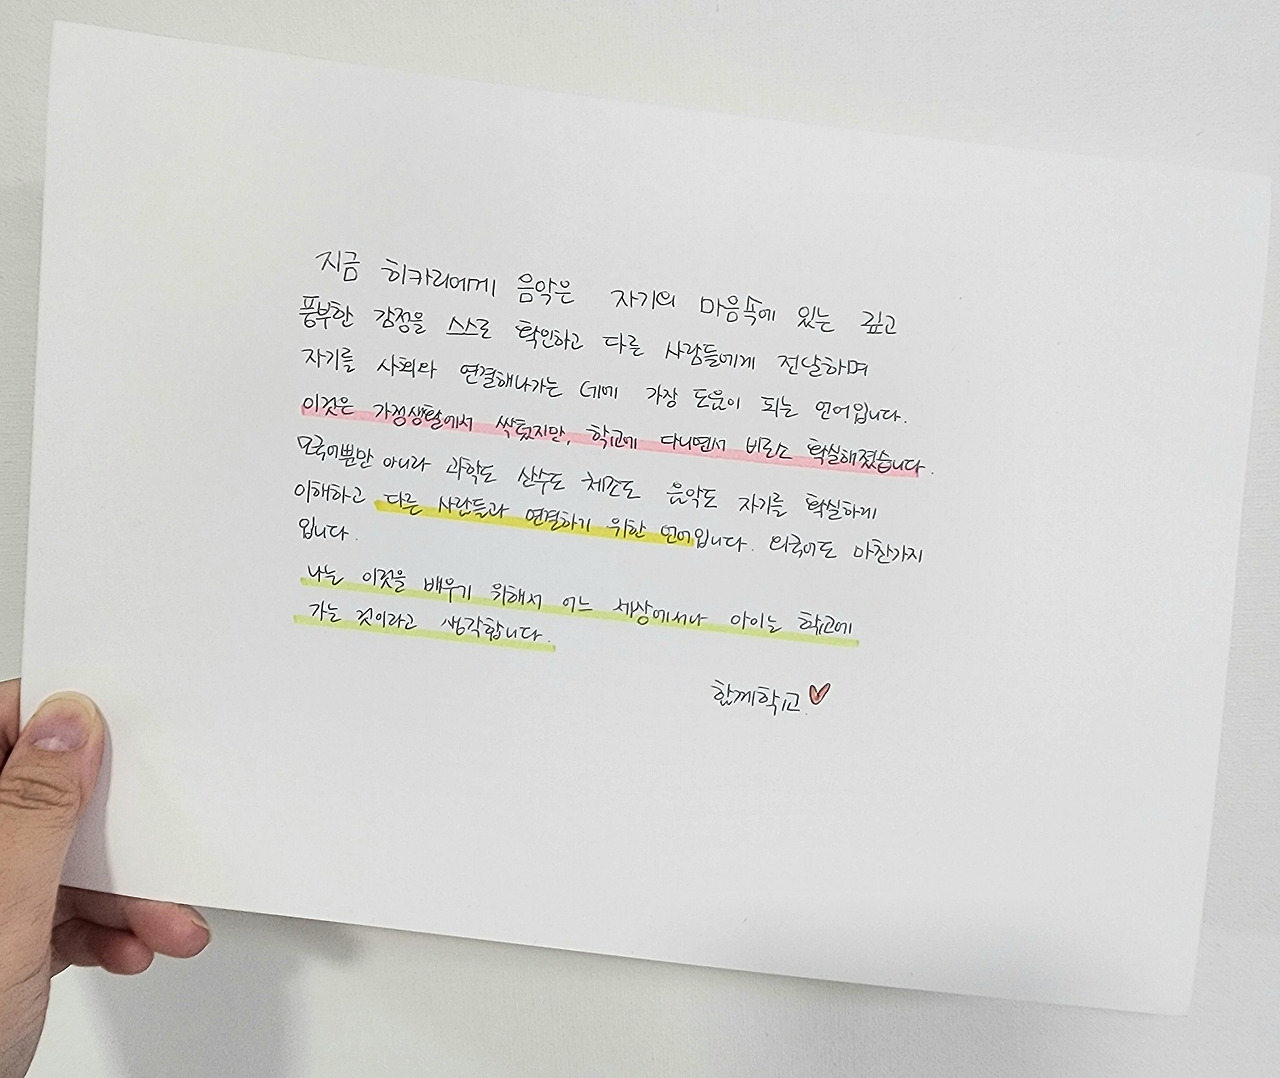 지금 히카리에게 음악은 자기의 마음속에 있는 깊고
풍부한 감정을 스스로 확인하고 다른 사람들에게 전달하며
자기를 사회와 연결해나가는 데에 가장 도움이 되는 언어입니다.
이것은 가정생활에서 싹텄지만, 학교에 다니면서 비로소 확실해졌습니다.
모국어뿐만 아니라 과학도 산수도 체조도 음악도 자기를 확실하게
이해하고 다른 사람들과 연결하기 위한 언어입니다. 외국어도 마찬가지
입니다.
나는 이것을 배우기 위해서 어느 세상에서나 아이는 학교에
가는 것이라고 생각합니다.
함께학교